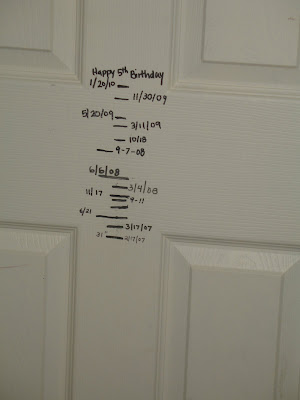 Happy 5th Birthday
1/20/10
11/30/09
5/20/09
3/11/09
10/18
9-7-08
6/6/08
3/4/08
11/17
9-11
6/21
3/17/07
2/17/07